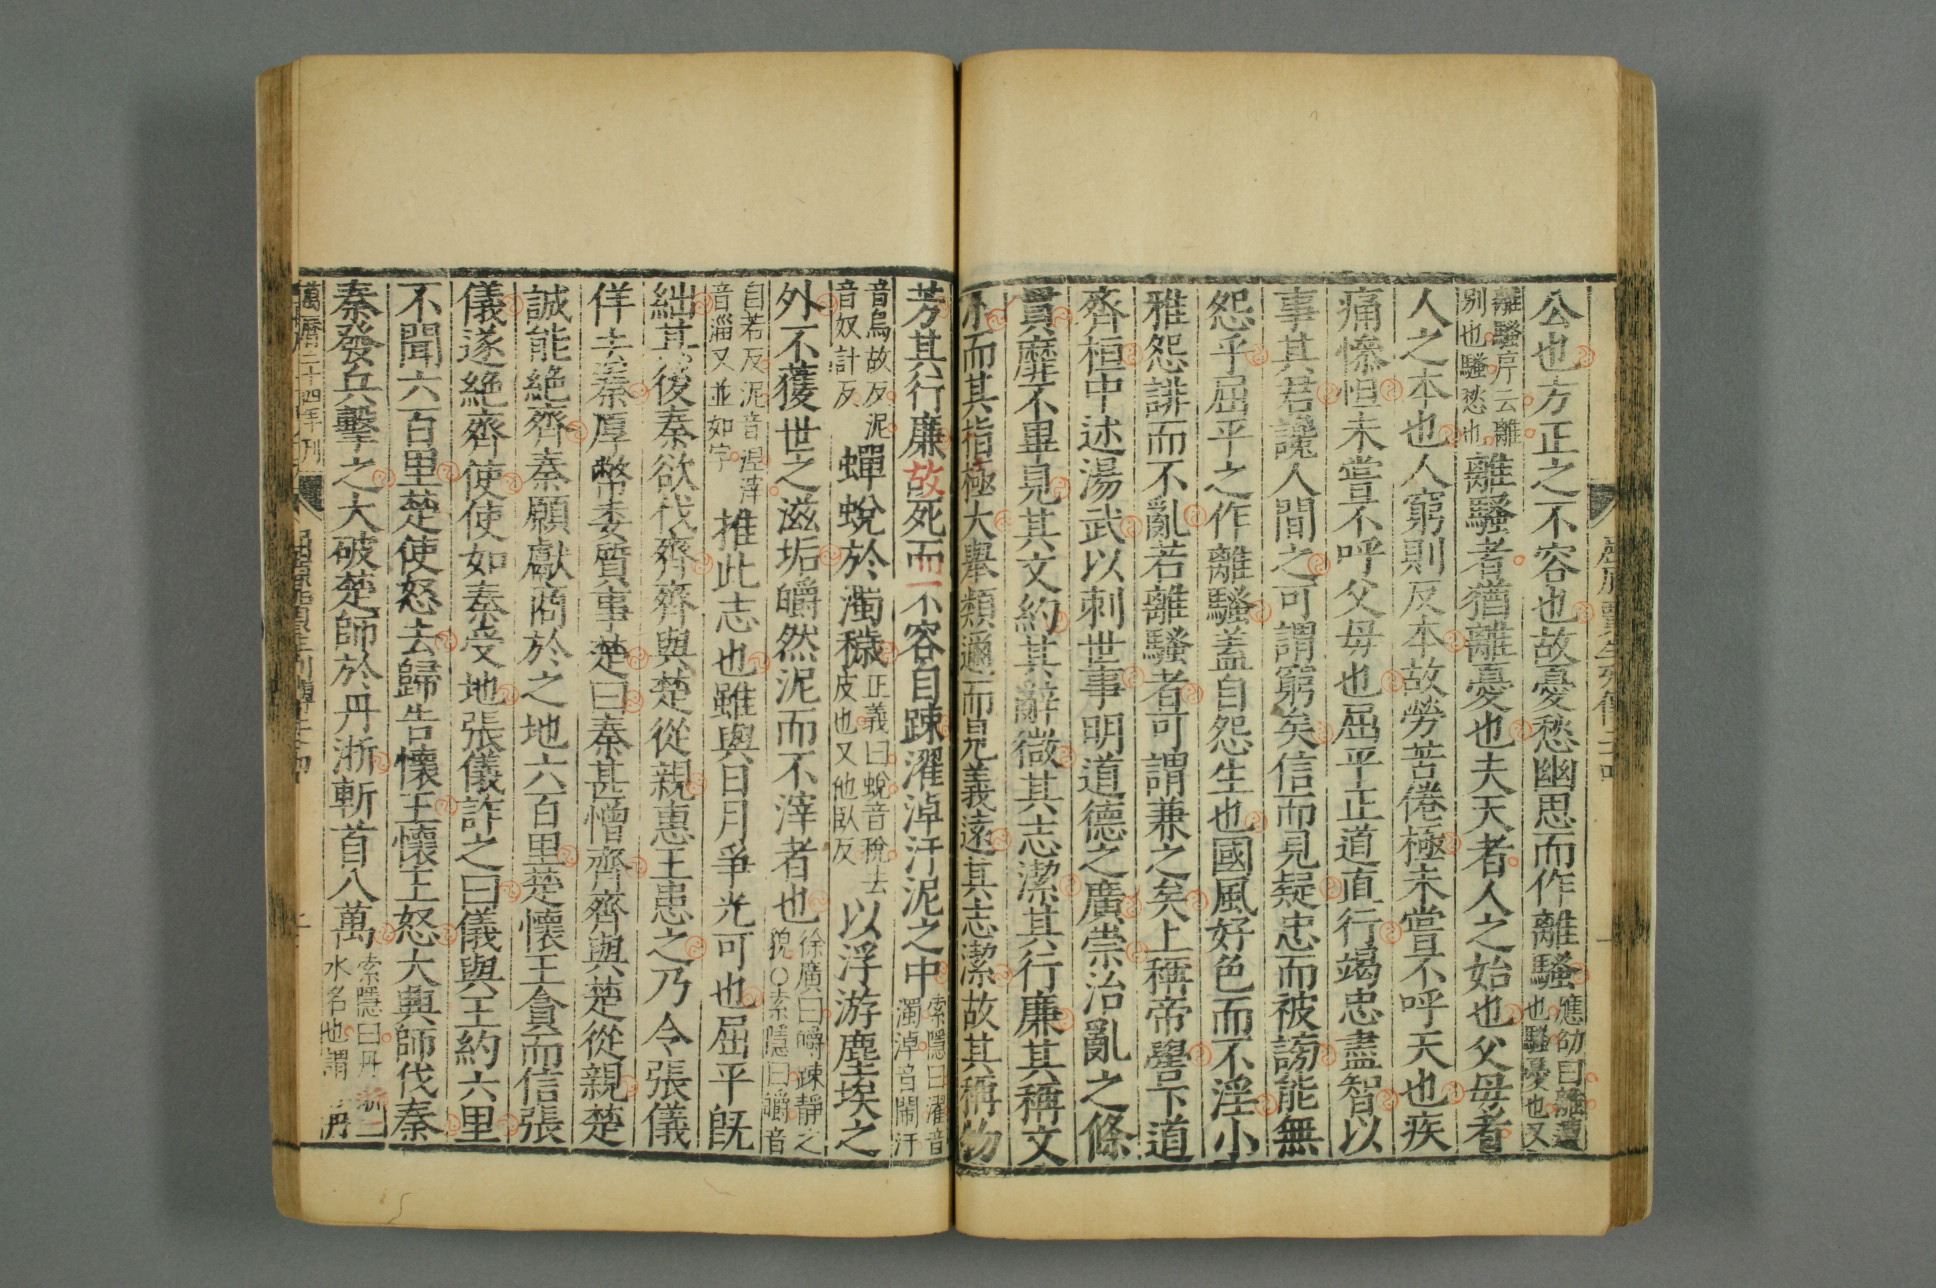 公也方正之不容也故憂愁幽思而作離騷應劭曰離遭也騷憂也又
離騷序云離別也騷愁也離騷者猶離憂也夫天者人之始也父母者
人之本也人窮則反本故勞苦倦極未嘗不呼天也疾
痛慘怛未嘗不呼父母也屈平正道直行竭忠盡智以
事其君讒人間之可謂窮矣信而見疑忠而被謗能無
怨乎屈平之作離騷蓋自怨生也國風好色而不淫小
雅怨誹而不亂若離騷者可謂兼之矣上稱帝嚳下道
齊桓中述湯武以刺世事明道德之廣崇治亂之條
貫靡不畢見其文約其辭微其志潔其行廉其稱文
小而其指極大舉類邇而見義遠其志潔故其稱物
芳其行廉故死而不容自疎濯淖汙泥之中索隱曰濯音濁淖音鬧汙
音烏故反泥音奴計反蟬蛻於濁穢正義曰蛻音稅去皮也又他臥反以浮游塵埃之
外不獲世之滋垢皭然泥而不滓者也徐廣曰皭疎靜之貌○索隱曰皭音
自若反泥音涅滓音淄又並如字推此志也雖與日月爭光可也屈平既
絀其後秦欲伐齊齊與楚從親惠王患之乃令張儀
佯去秦厚幣委質事楚曰秦甚憎齊齊與楚從親楚
誠能絕齊秦願獻商於之地六百里楚懷王貪而信張
儀遂絕齊使使如秦受地張儀詐之曰儀與王約六里
不聞六百里楚使怒去歸告懷王懷王怒大興師伐秦
秦發兵擊之大破楚師於丹淅斬首八萬索隱曰丹淅二水名也謂丹
萬曆二十四年刊
屈原賈生列傳二十四
二